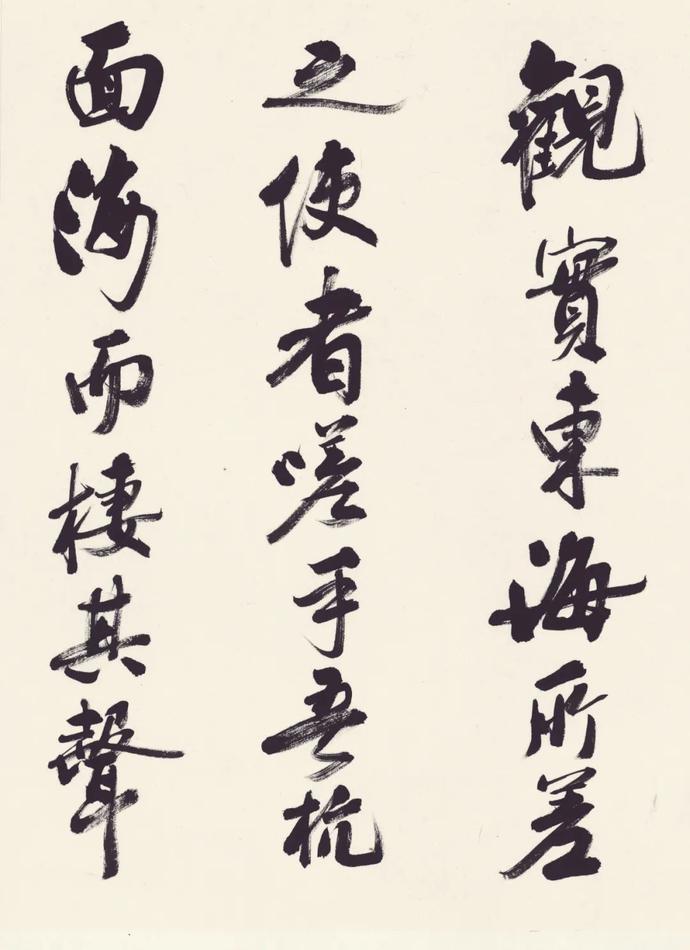 觀實東海所差
之使者嗟手吾杭
面海而棲其聲